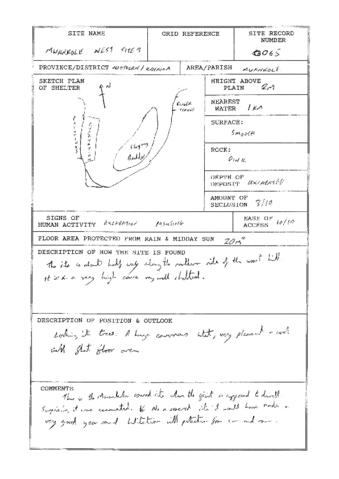 SITE NAME GRID REFERENCE SITE RECORD NUMBER
WEST SITE 3 GO65
PROVINCE/DISTRICT AREA/PARISH
SKETCH PLAN OF SHELTER
N
HEIGHT ABOVE PLAIN 2M
NEAREST WATER 1 KM
SURFACE:
SMOOTH
ROCK:
PINK
DEPTH OF DEPOSIT EXCAVATED
AMOUNT OF SECLUSION /10
SIGNS OF HUMAN ACTIVITY EXCAVATION PAINTING
EASE OF ACCESS 10/10
FLOOR AREA PROTECTED FROM RAIN & MIDDAY SUN 20m²
DESCRIPTION OF HOW THE SITE IS FOUND
The site is about half way along the northern side of the west hill
It is in a very high cave very well sheltered.
DESCRIPTION OF POSITION & OUTLOOK
Looking into trees. A huge cavernous , very pleasant & cool
with flat floor area
COMMENTS
This is the sacred site where the giant is supposed to dwell
it was excavated. If not a sacred site it would have made a
very good year round habitation with protection from sun and rain.